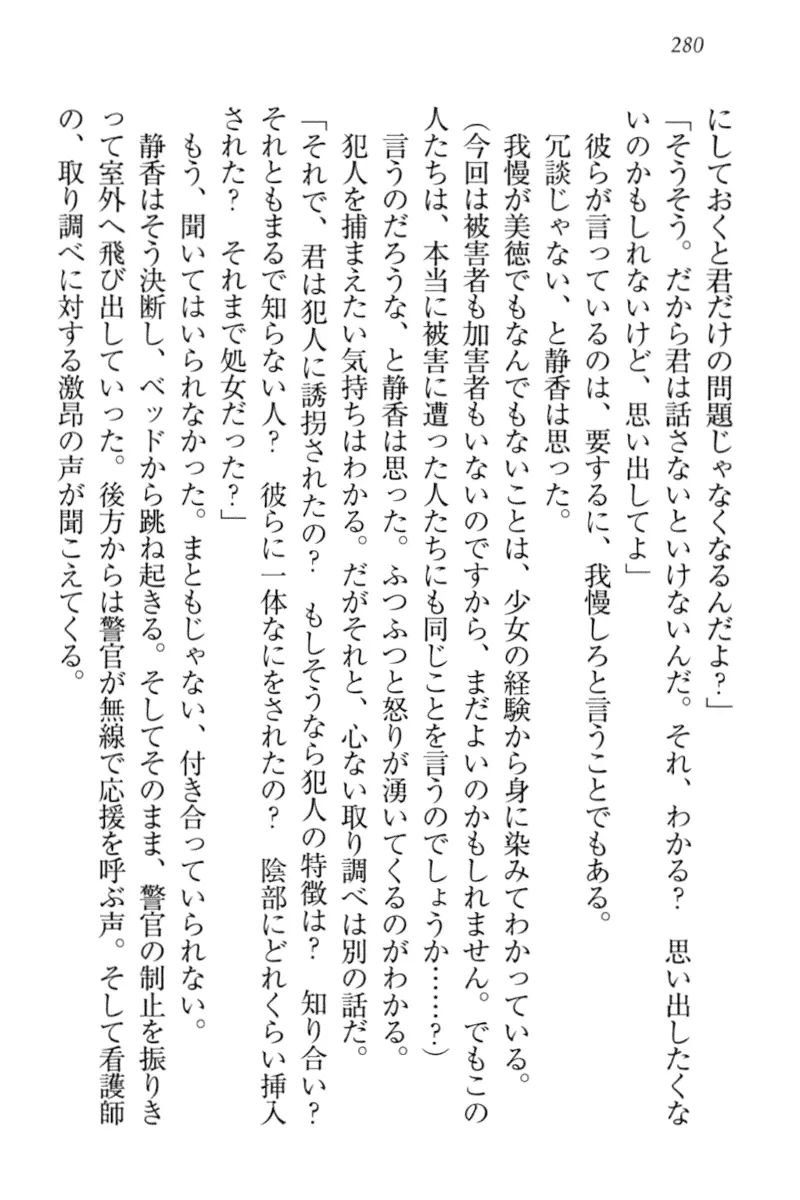 280
にしておくと君だけの問題じゃなくなるんだよ？」
「そうそう。だから君は話さないといけないんだ。それ、わかる？　思い出したくな
いのかもしれないけど、思い出してよ」
彼らが言っているのは、要するに、我慢しろと言うことでもある。
冗談じゃない、と静香は思った。
我慢が美徳でもなんでもないことは、少女の経験から身に染みてわかっている。
（今回は被害者も加害者もいないのですから、まだよいのかもしれません。でもこの
人たちは、本当に被害に遭った人たちにも同じことを言うのでしょうか……？）
言うのだろうな、と静香は思った。ふつふつと怒りが湧いてくるのがわかる。
犯人を捕まえたい気持ちはわかる。だがそれと、心ない取り調べは別の話だ。
「それで、君は犯人に誘拐されたの？　もしそうなら犯人の特徴は？　知り合い？
それともまるで知らない人？　彼らに一体なにをされたの？　陰部にどれくらい挿入
された？　それまで処女だった？」
もう、聞いてはいられなかった。まともじゃない、付き合っていられない。
静香はそう決断し、ベッドから跳ね起きる。そしてそのまま、警官の制止を振りき
って室外へ飛び出していった。後方からは警官が無線で応援を呼ぶ声。そして看護師
の、取り調べに対する激昂の声が聞こえてくる。